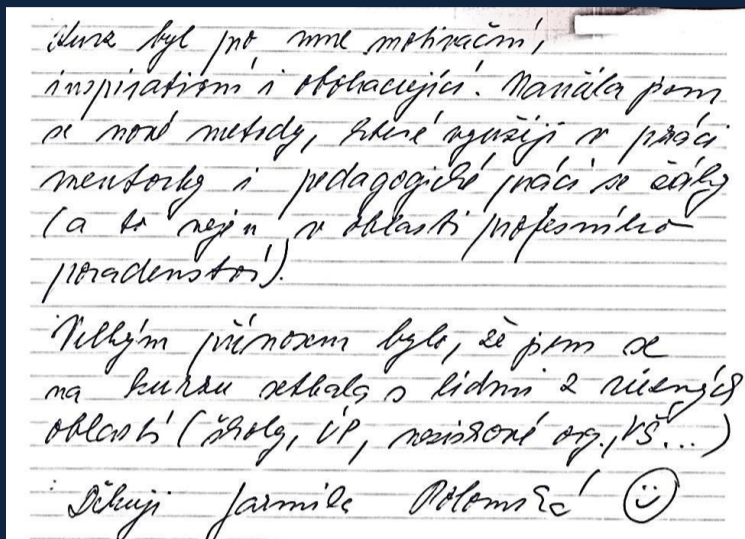 Kurz byl pro mne motivační,
inspirativní i obohacující. Naučila jsem
se nové metody, které využiji v práci
mentorky i pedagogické práci se žáky
(a to nejen v oblasti profesního
poradenství).
Velkým přínosem bylo, že jsem se
na kurzu setkala s lidmi z různých
oblastí (školy, ÚP, neziskové org., VŠ...)
Děkuji Jarmila Polomská ☺